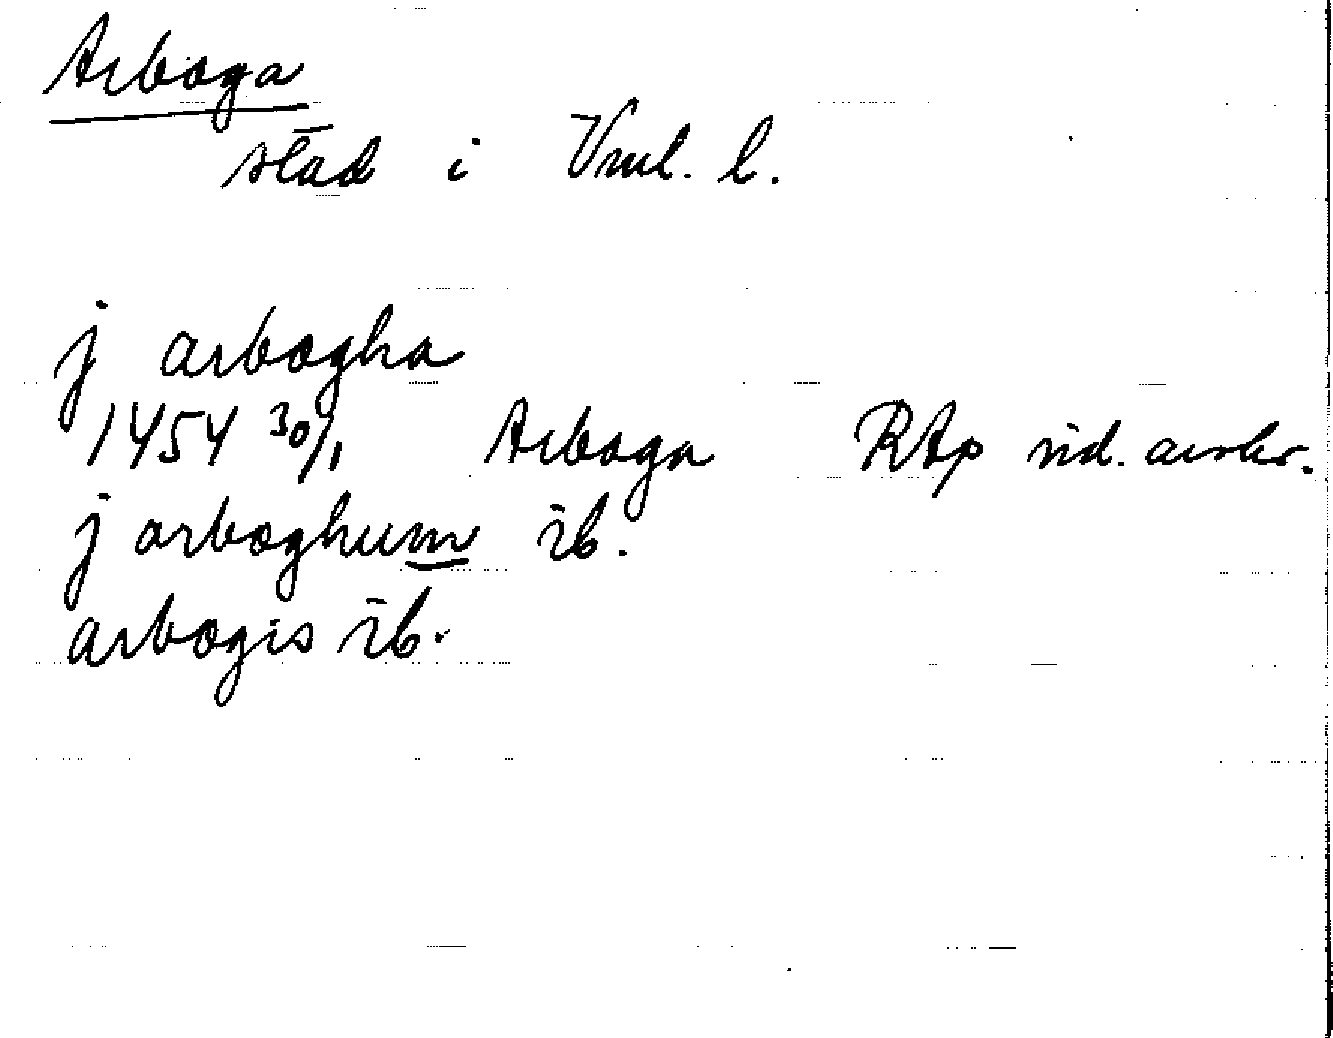 Arboga
stad i Vml. l.
j arbogha
1454 30/1 Arboga RAp sid. avskr.
j arboghum ib.
arbogis ib.